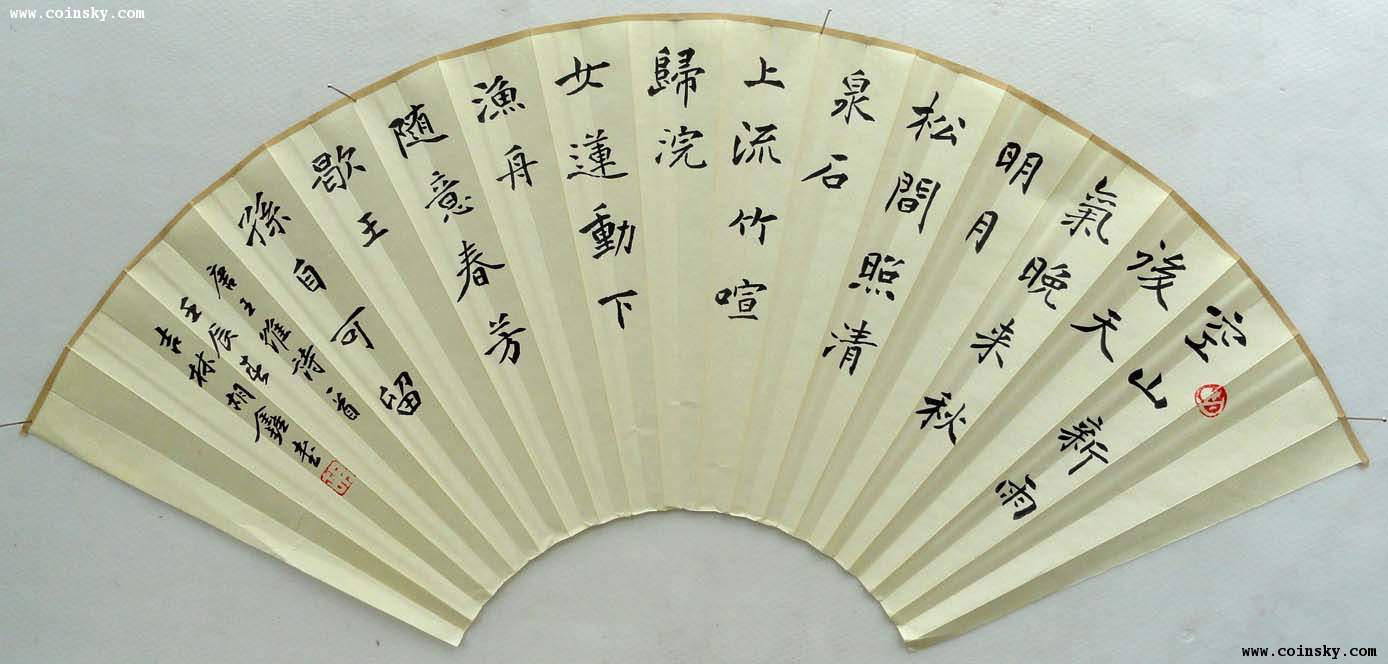 www.coinsky.com
空山新雨
後天
氣晚来秋
明月
松間照清
泉石
上流竹喧
歸浣
女蓮動下
漁舟
随意春芳
歇王
孫自可留
唐王維詩一首
壬辰春
吉林胡鑫書
www.coinsky.com